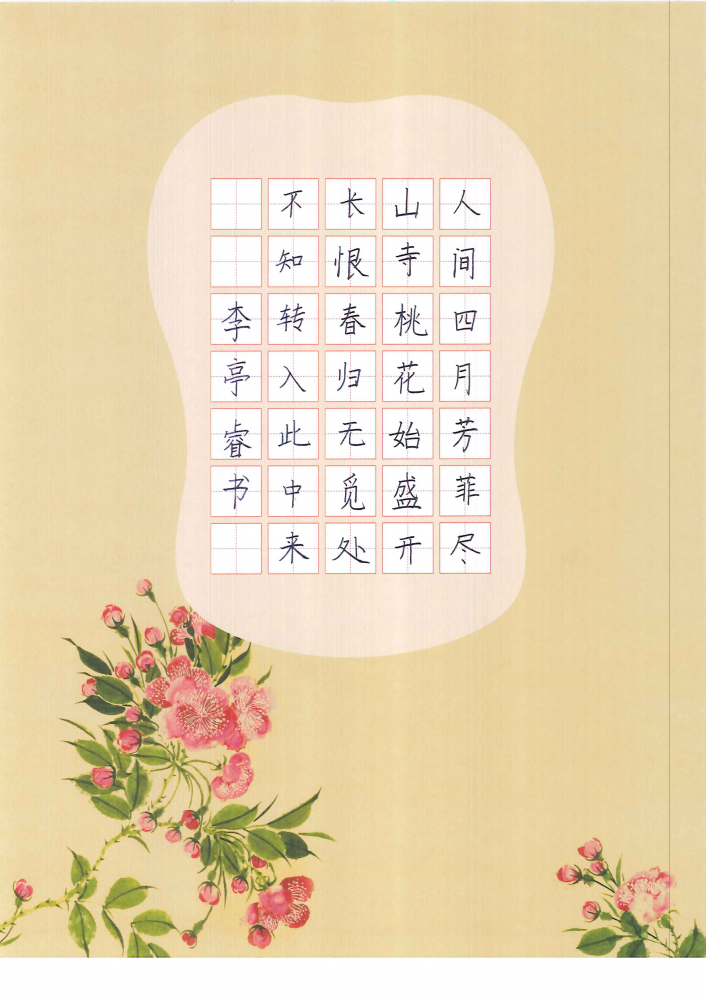 人间四月芳菲尽
山寺桃花始盛开
长恨春归无觅处
不知转入此中来
李亭睿书